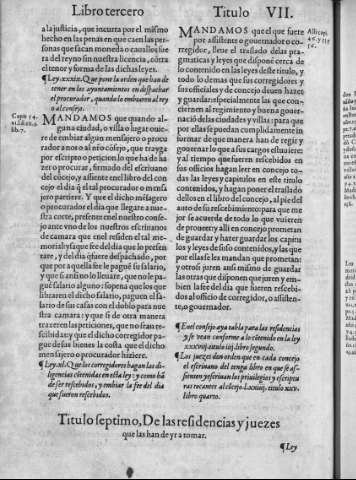 Libro tercero
Titulo VII.
a la justicia, que incurra por el mismo
hecho en las penas en que caen las per-
sonas que sacan moneda o cauallos fue
ra del reyno sin nuestra licencia, cõtra
el tenor y forma de las dichas leyes.
¶Ley.xxxix. Que pone la orden que han de
tener en los ayuntamientos en despachar
el procurador, quando lo embiaren al rey
o al consejo.
MANDAMOS que quando al-
guna ciudad, o villa o lugar ouie-
re de embiar algun mensajero o procu
rador a nos o al ñro cõsejo, que trayga
por escripto o peticion lo que ha de ha
zer o procurar, firmado del escriuano
del cõcejo, y assiente enel libro del con
cejo el dia q̃ el tal procurador o mensa
jero partiere. Y que el dicho mẽsagero
o procurador el dia que llegare a nue-
stra corte, presente enel nuestro conse-
jo ante vno de los nuestros escriuanos
de camara que enel residen el tal me-
morial y saque fee del dia que lo presen
tare, y del dia q̃ fuere despachado, por
que por aquella fee le paguẽ su salario,
y que si ansi no lo lleuare, que no le pa-
guẽ salario alguno: so pena que los que
libraren el dicho salario, paguen el sa-
lario de sus casas con el doblo para nue
stra camara: y que si de otra manera
traxeren las peticiones, que no seã re-
scibidas: y que el dicho corregidor pa-
gue de sus bienes la costa que el dicho
mensajero o procurador hiziere.
¶Ley.xl. Que los corregidores hagan las di-
ligencias cõtenidas en esta ley: y como ha
de ser rescebidos, y embiar la fee del dia
que fueren rescebidos.
MANDAMOS que el que fuere
por assistente o gouernador o co-
rregidor, lleue el traslado delas prag-
maticas y leyes que disponẽ cerca de
lo contenido en las leyes deste titulo, y
todo lo demas que sus corregidores y
sus officiales y de concejo deuen hazer
y guardar: specialmente las que con-
ciernen al regimiento y buena gouer-
nacion delas ciudades y villas: para que
por ellas se puedan cumplidamente in
formar de que manera han de regir y
gouernar lo que a sus cargos estuuiere
y al tiempo que fueren rescebidos en
sus officios hagan leer en concejo to-
das las leyes y capitulos en este titulo
contenidos, y hagan poner el traslado
dellos en el libro del concejo, al pie del
auto de su rescebimiento: para que me
jor se acuerde de todo lo que vuieren
de proueer y alli en concejo prometan
de guardar y hazer guardar los capitu
los y leyes de suso contenidos, y las que
por ellas se les mandan que prometan:
y otrosi juren ansi mismo de guardar
las otras que disponen que juren y em-
bien la fee del dia que fueren rescebi-
dos al officio de corregidor, o assisten-
te, o gouernador.
¶En el consejo aya tabla para las residencias
y se vean conforme a lo cõtenido en la ley
xxxviij. titulo iiij. libro segundo.
¶Los juezes den orden que en cada concejo
el escriuano del tenga libro en que se as-
sienten y escriuan los priuilegios y escriptu
Libro quarto.
Titulo septimo, De las residencias y juezes
que las han de yr a tomar.
¶Ley